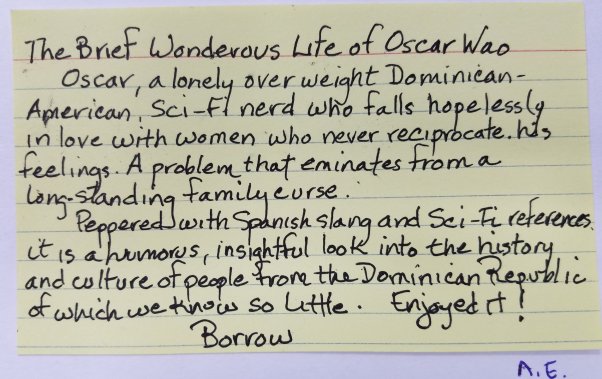 The Brief Wonderous Life of Oscar Wao
Oscar, a lonely over weight Dominican-
American, Sci-Fi nerd who falls hopelessly
in love with women who never reciprocate his
feelings. A problem that eminates from a
long-standing family curse.
Peppered with Spanish slang and Sci-Fi references.
it is a humorus, insightful look into the history
and culture of people from the Dominican Republic
of which we know so little. Enjoyed it!
Borrow
A.E.